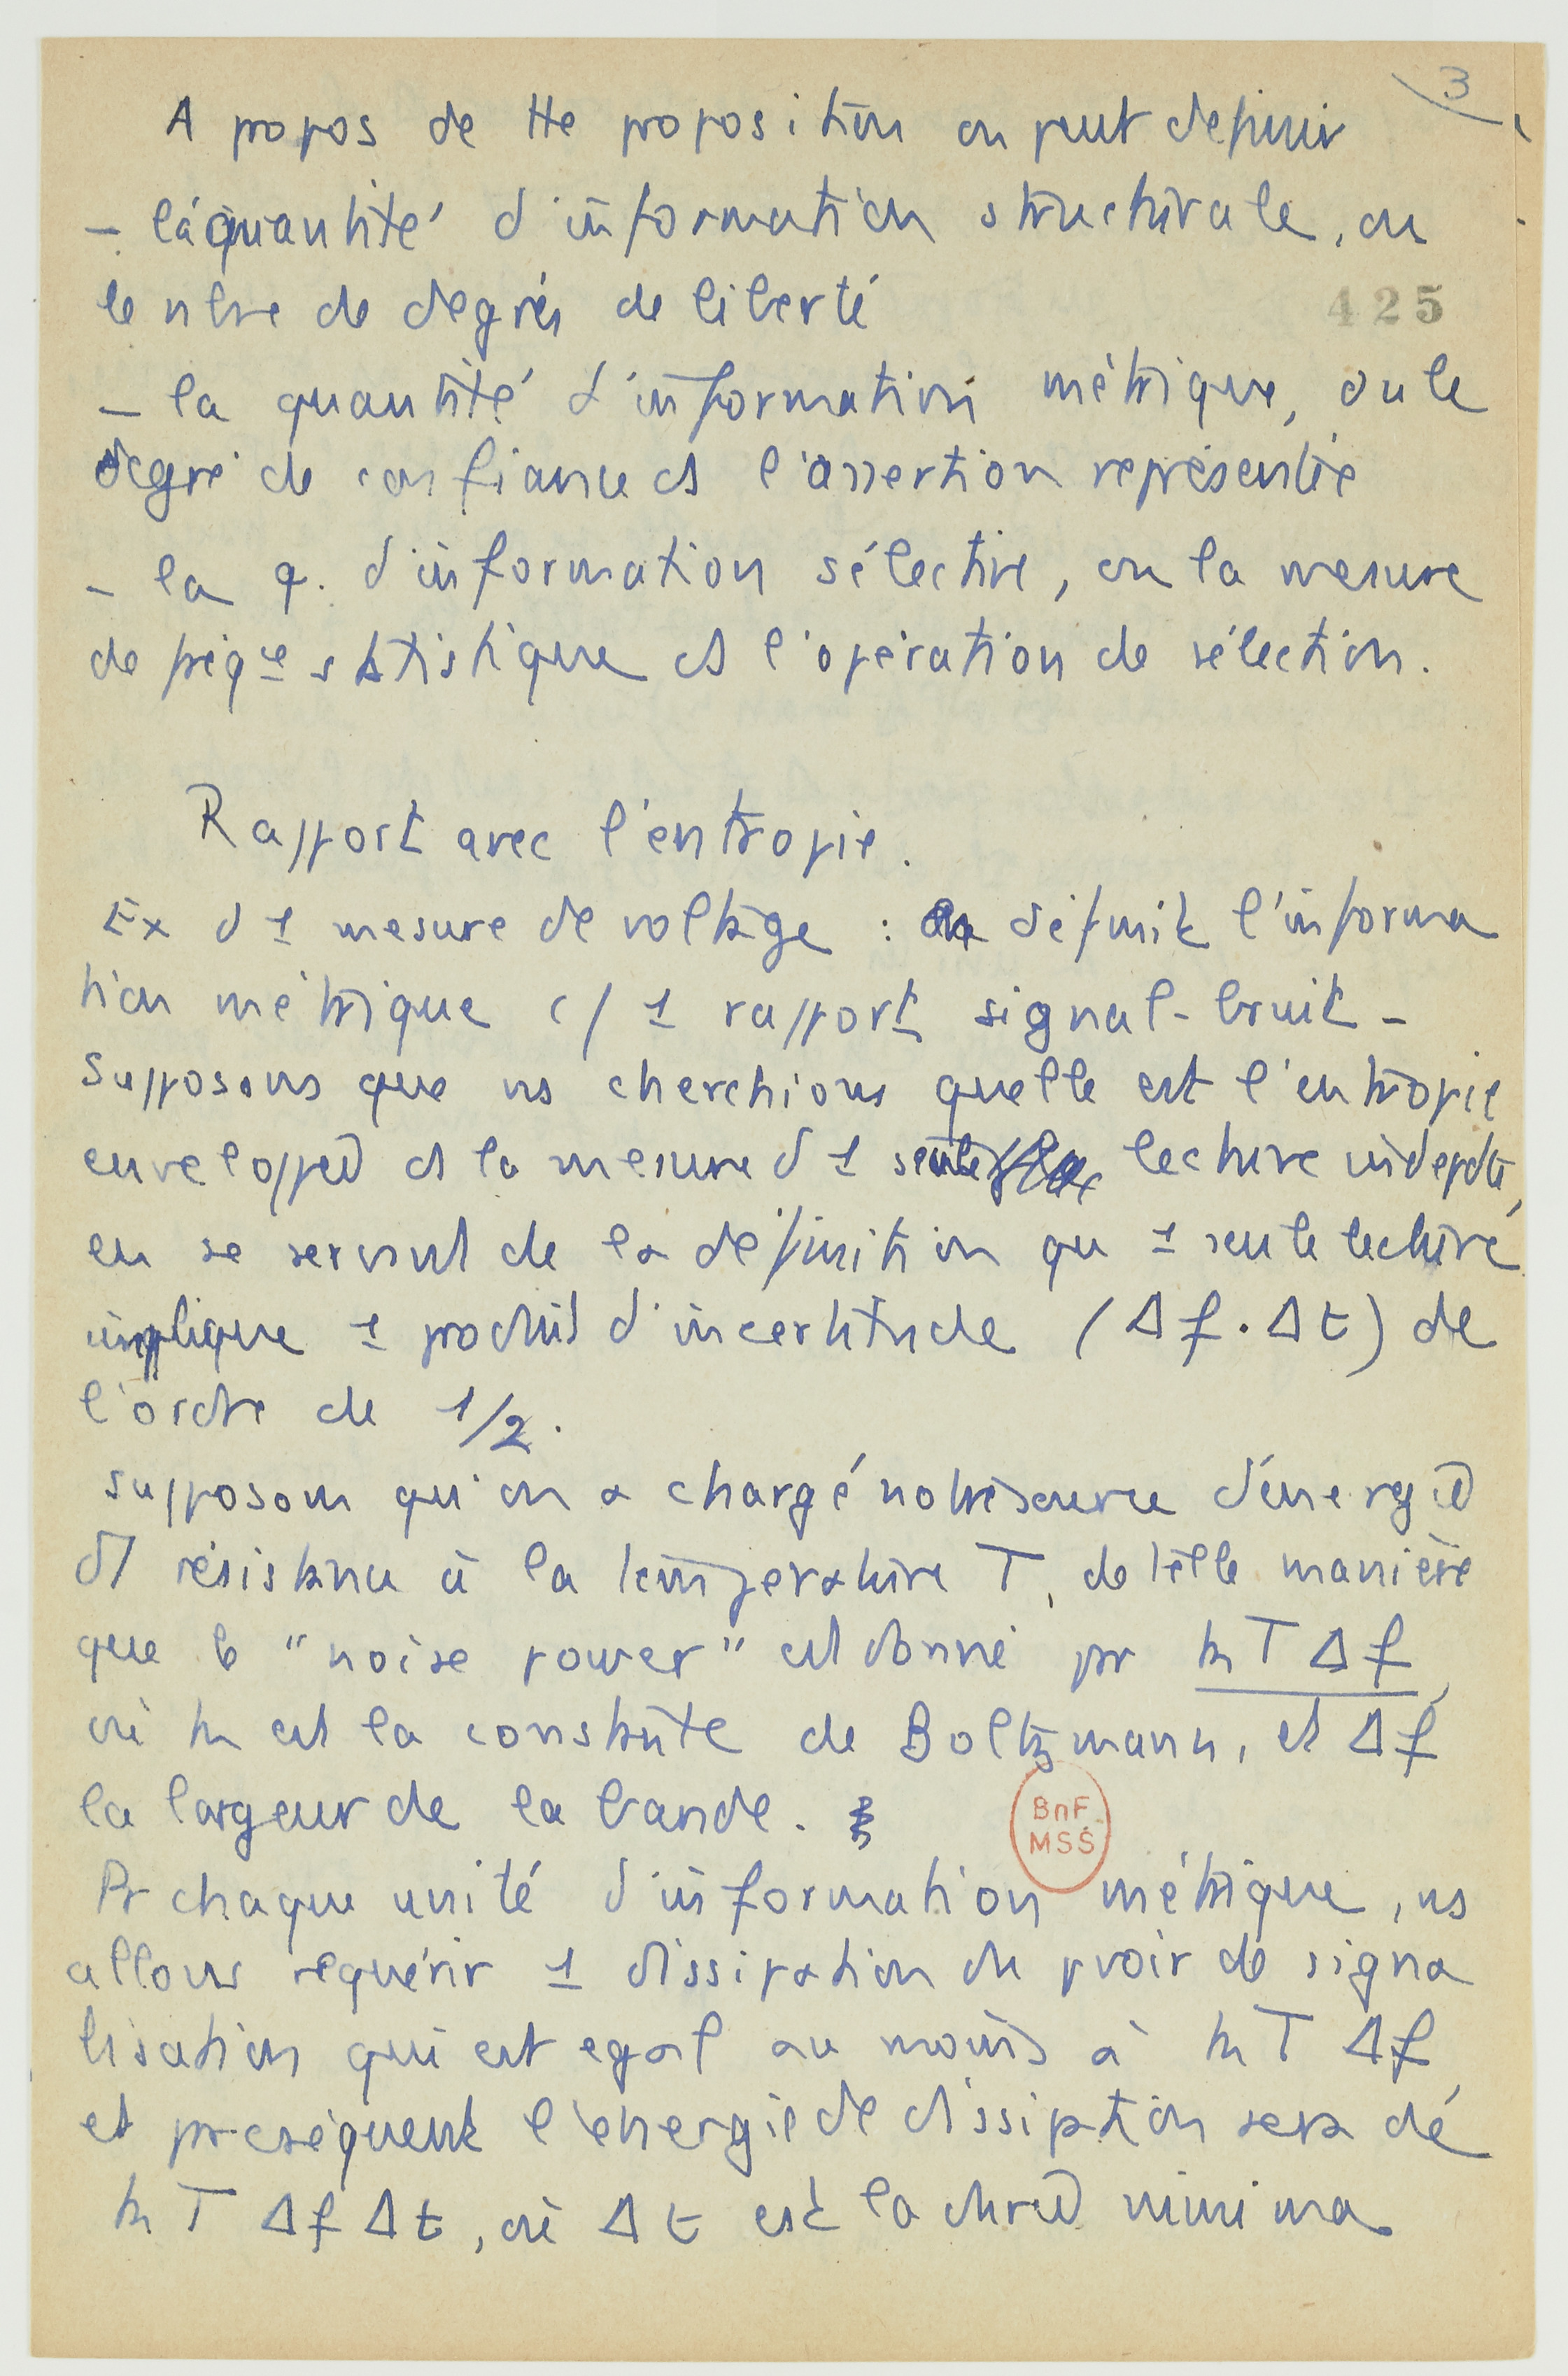 3
A propos de tte proposition on peut définir
- la quantité d'information structurale, ou
le nbre de degrés de liberté
425
- la quantité d'information métrique, ou le
degré de confiance ds l'assertion représentée
- la q. d'information sélective, ou la mesure
de statistique ds l'opération de sélection.
Rapport avec l'entropie.
Ex d 1 mesure de voltage : on définit l'informa
tion métrique c/ 1 rapport signal-bruit -
Supposons que ns cherchions quelle est l'entropie
enveloppée ds la mesure d 1 seule lecture indepdte,
en se servant de la définition qu 1 seule lecture
implique 1 produit d'incertitude (Δf . Δt) de
l'ordre de 1/2.
Supposons qu'on a chargé notre source d'énergie
résistance à la température T, de telle manière
que le "noise power" est donné pr k T Δf,
où k est la constante de Boltzmann, et Δf
la largeur de la bande.
BnF
MSS
Pr chaque unité d'information métrique, ns
allons requérir 1 dissipation du pvoir de signa
lisation qui est egal au moins à k T Δf
et pr cséquent l'énergie de dissipation sera de
k T Δf Δt, où Δt est la durée minima